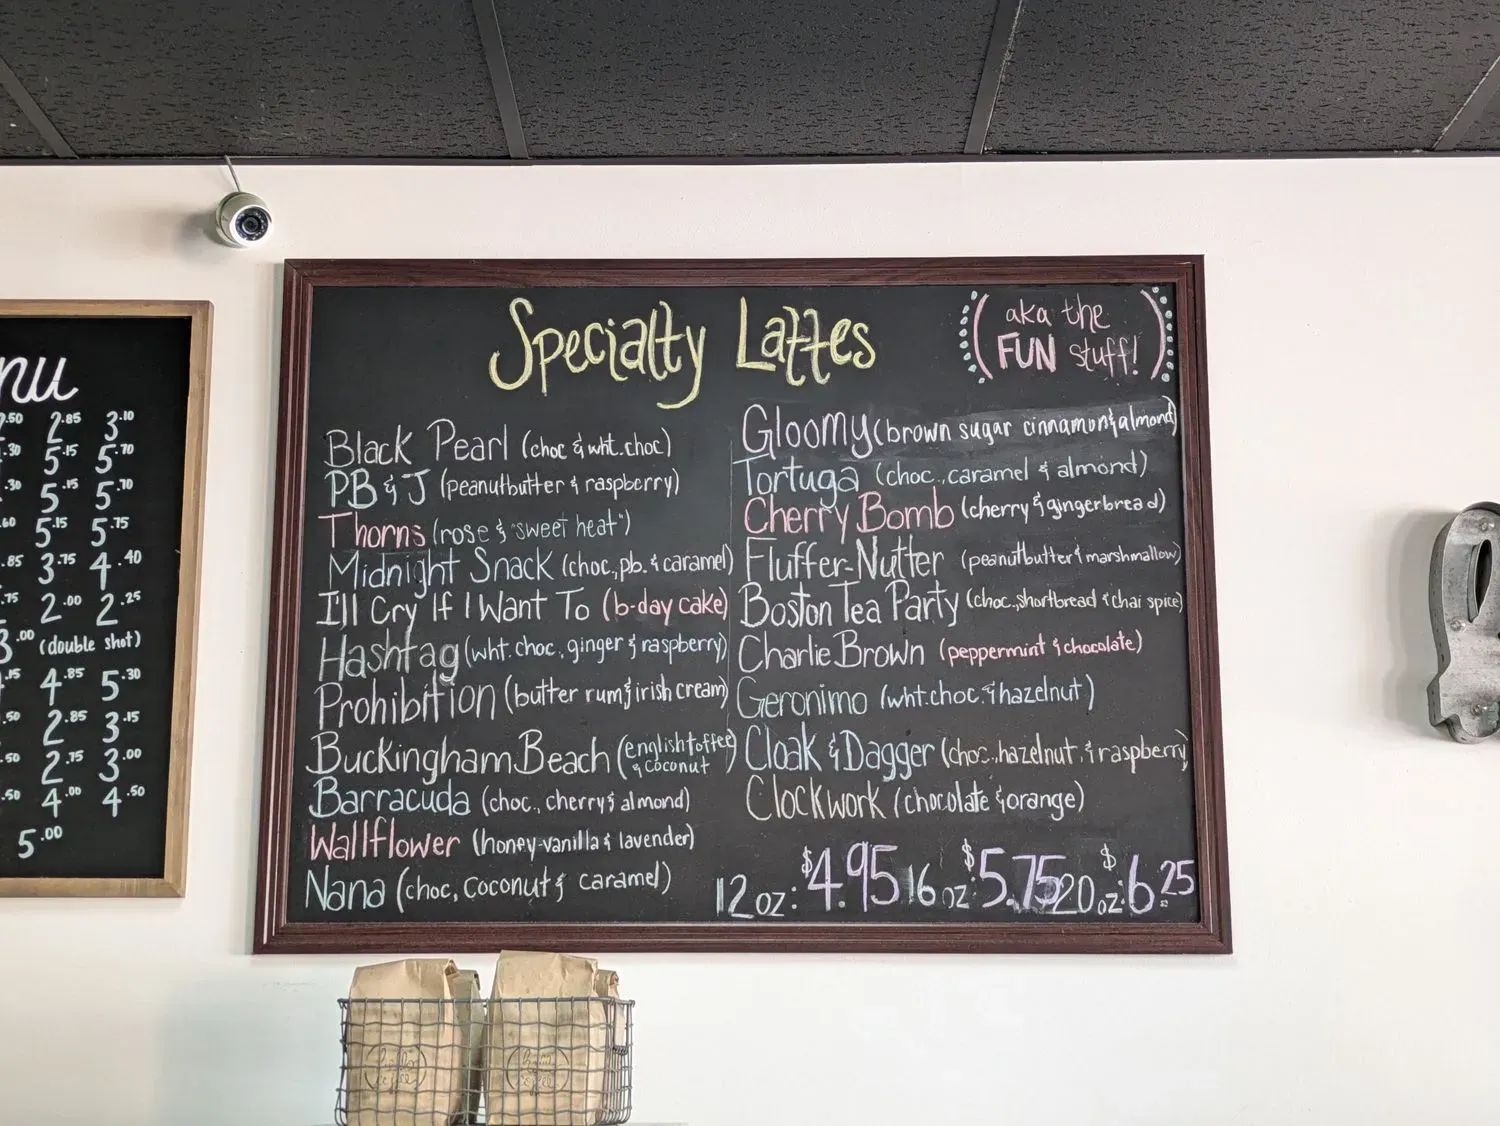 nu
.50 2.85 3.10
.30 5.15 5.70
.30 5.15 5.70
.60 5.15 5.75
.85 3.75 4.40
.75 2.00 2.25
3.00 (double shot)
.15 4.85 5.30
.50 2.85 3.15
.50 2.75 3.00
.50 4.00 4.50
5.00
Specialty Lattes
(aka the
FUN stuff!)
Black Pearl (choc & wht.choc)
PB & J (peanutbutter & raspberry)
Thorns (rose & "sweet heat")
Midnight Snack (choc.,pb. & caramel)
I'll Cry If I Want To (b-day cake)
Hashtag (wht.choc., ginger & raspberry)
Prohibition (butter rum & irish cream)
Buckingham Beach (english toffee
& coconut)
Barracuda (choc., cherry & almond)
Wallflower (honey-vanilla & lavender)
Nana (choc, coconut & caramel)
Gloomy (brown sugar cinnamon & almond)
Tortuga (choc., caramel & almond)
Cherry Bomb (cherry & gingerbread)
Fluffer-Nutter (peanutbutter & marshmallow)
Boston Tea Party (choc.,shortbread & chai spice)
Charlie Brown (peppermint & chocolate)
Geronimo (wht.choc. & hazelnut)
Cloak & Dagger (choc.,hazelnut, & raspberry)
Clockwork (chocolate & orange)
12 oz: $4.95 16 oz: $5.75 20 oz: $6.25